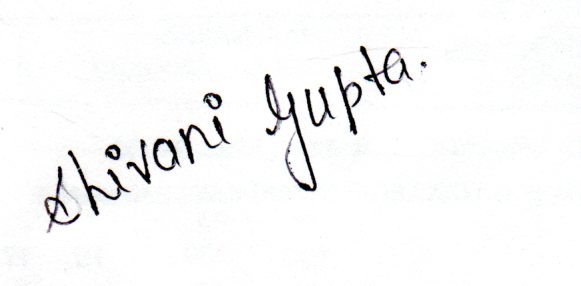 Shivani Gupta.